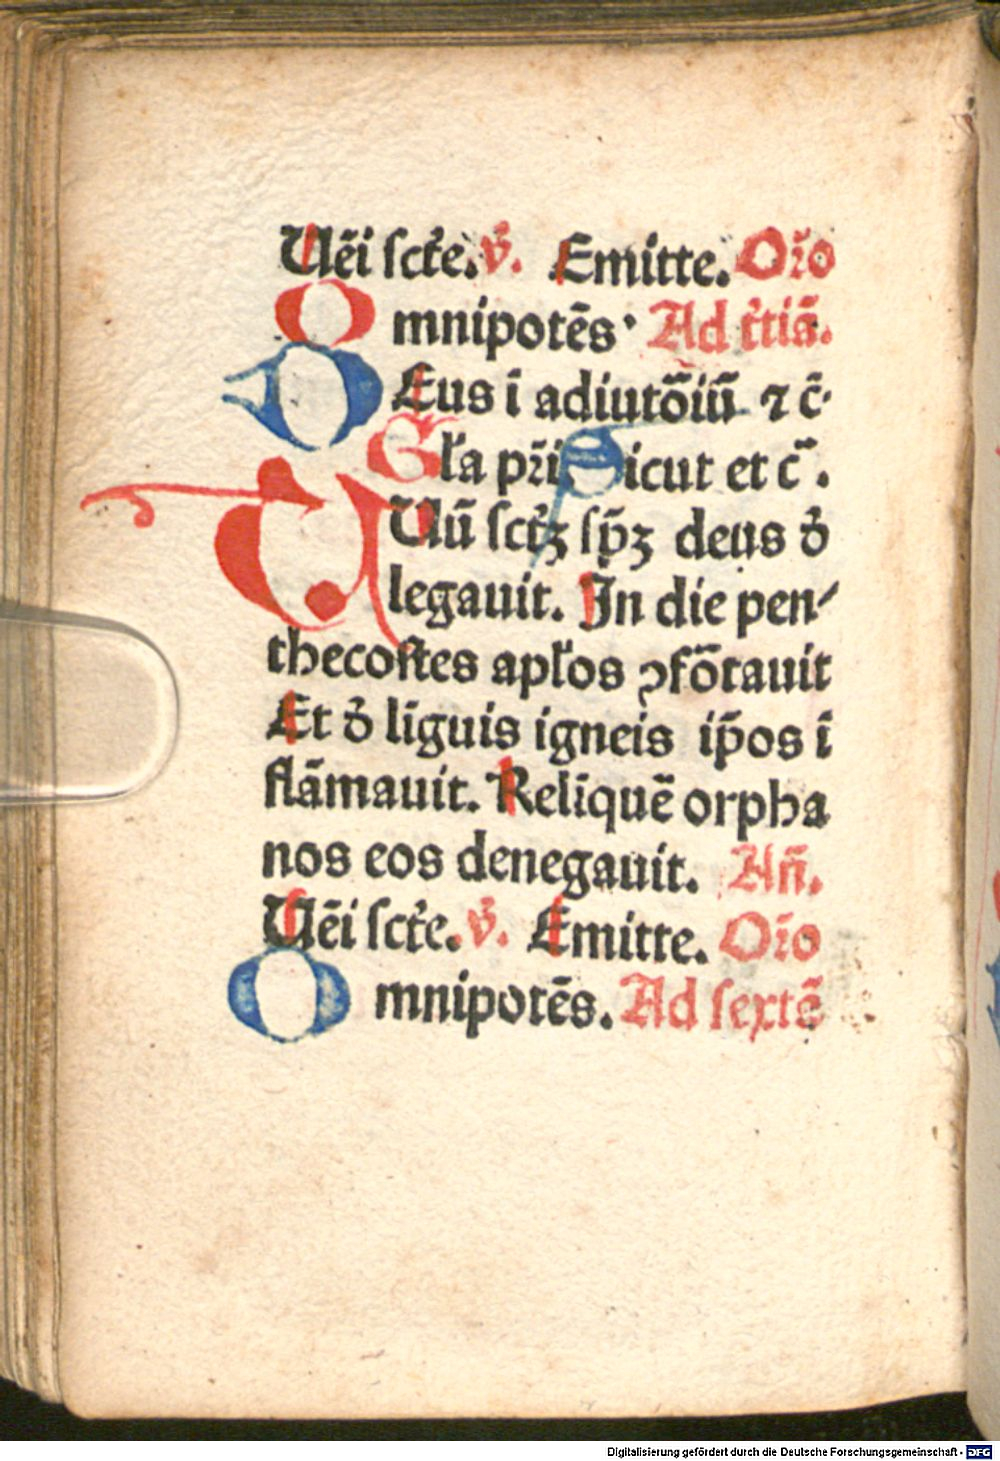 Uēi sct̄e. v̄. Emitte. Or̄o
Omnipotēs. Ad t̄tiā.
DEus ī adiutōiū ⁊ c̄.
Gl̄a pr̄i Sicut et c̄.
SUū sct̄ꝫ sp̄ꝫ deus d̄
legauit. In die pen⸗
thecostes apl̄os ꝯfōrtauit
Et d̄ līguis igneis ip̄os ī
flāmauit. Relīquē orpha
nos eos denegauit. Añ.
Uēi sct̄e. v̄. Emitte. Or̄o
Omnipotēs. Ad sextā
Digitalisierung gefördert durch die Deutsche Forschungsgemeinschaft - DFG